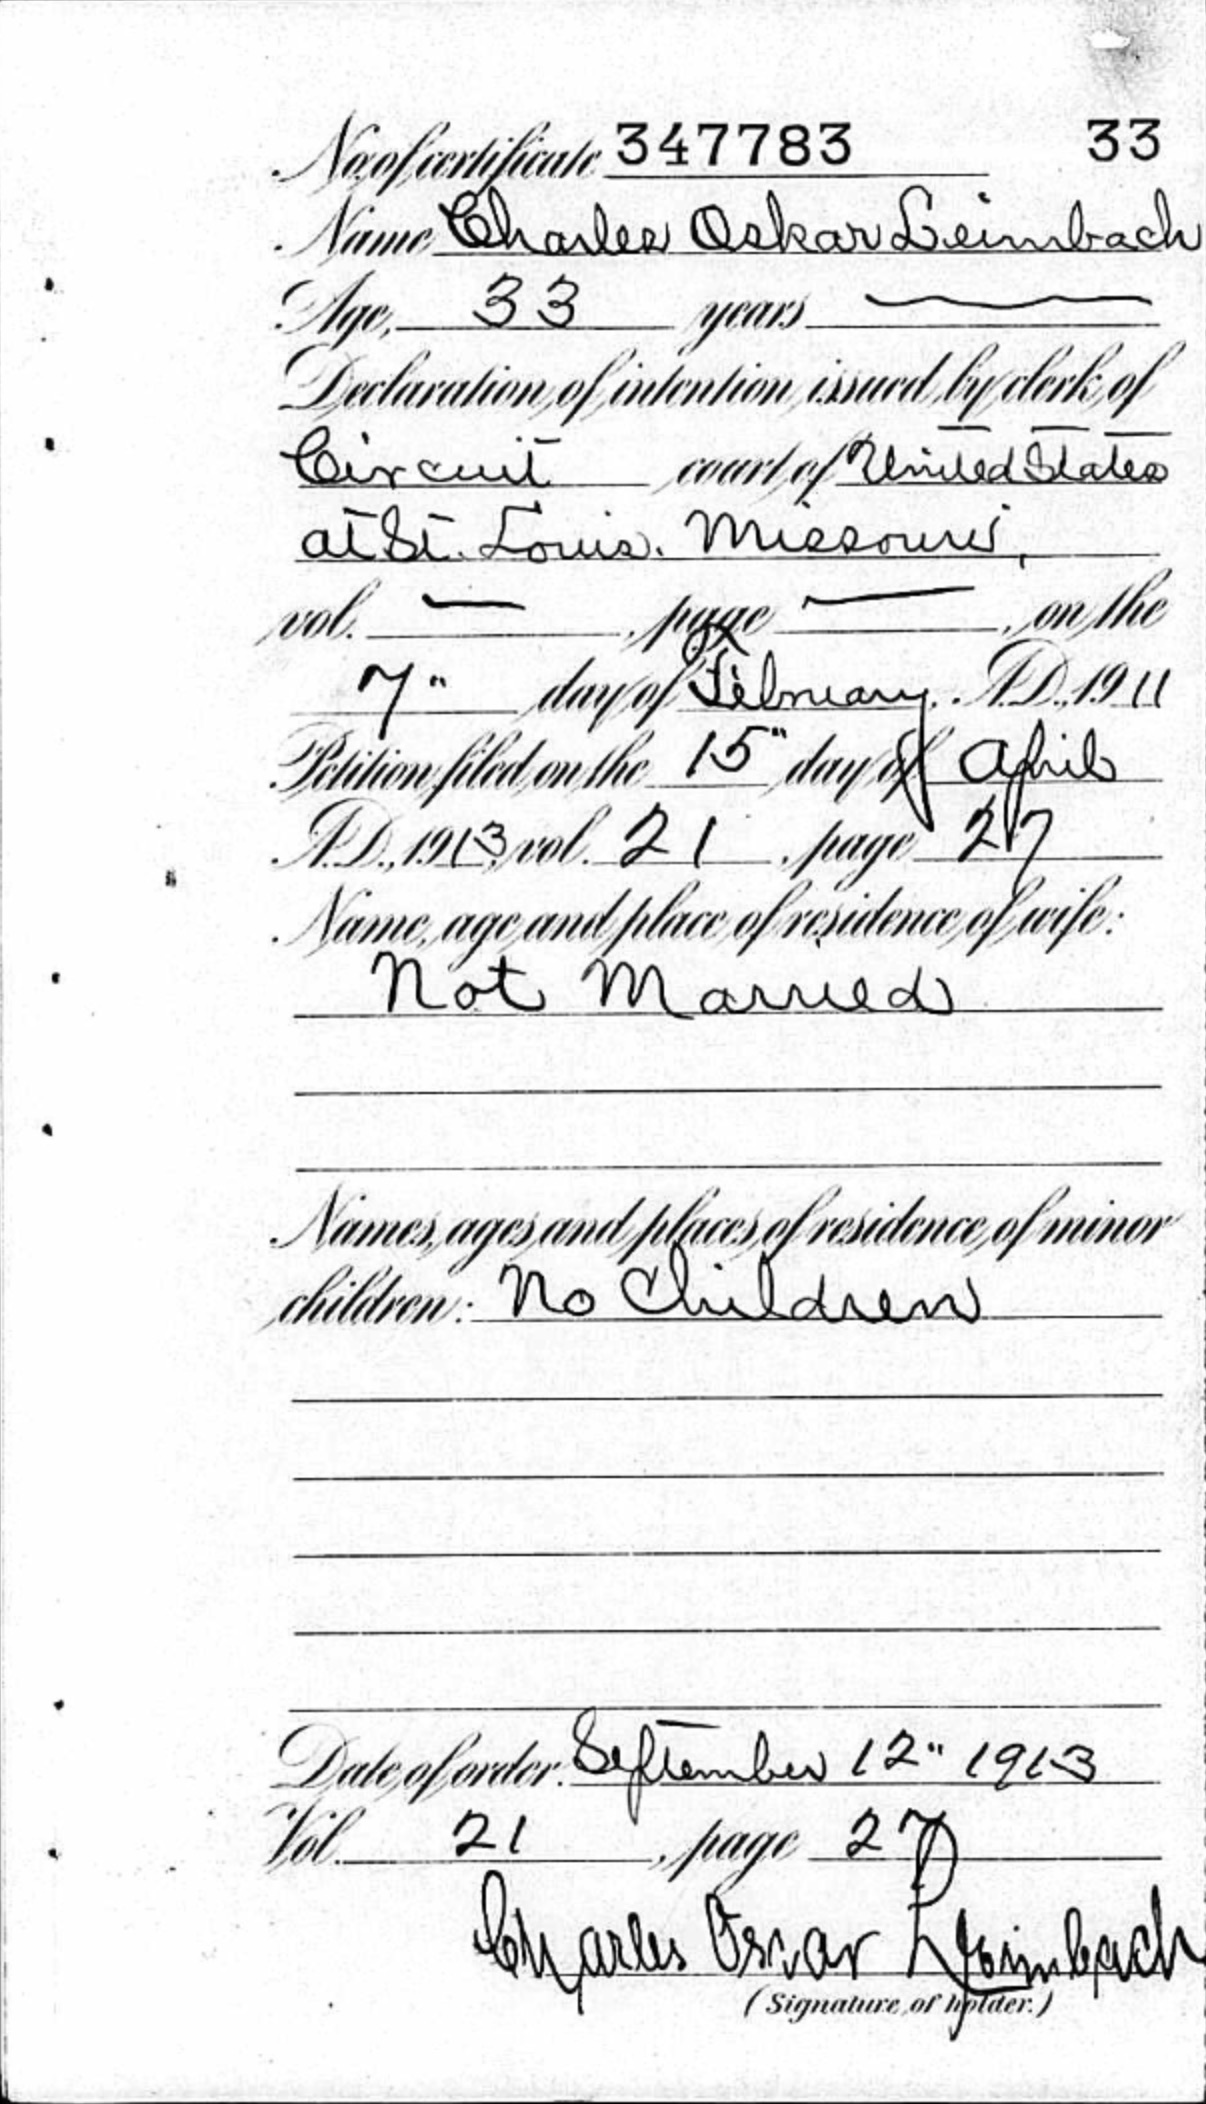 No. of certificate 347783 33
Name Charles Oskar Leimbach
Age, 33 years
Declaration of intention issued by clerk of
Circuit court of United States
at St. Louis. Missouri,
vol. — , page — , on the
7" day of February, A.D., 1911
Petition filed on the 15" day of April
A.D., 1913, vol. 21 , page 27
Name, age and place of residence of wife:
Not Married
Names, ages and places of residence of minor
children: No Children
Date of order. September 12" 1913
Vol. 21 , page 27
Charles Oscar Leimbach
(Signature of holder.)